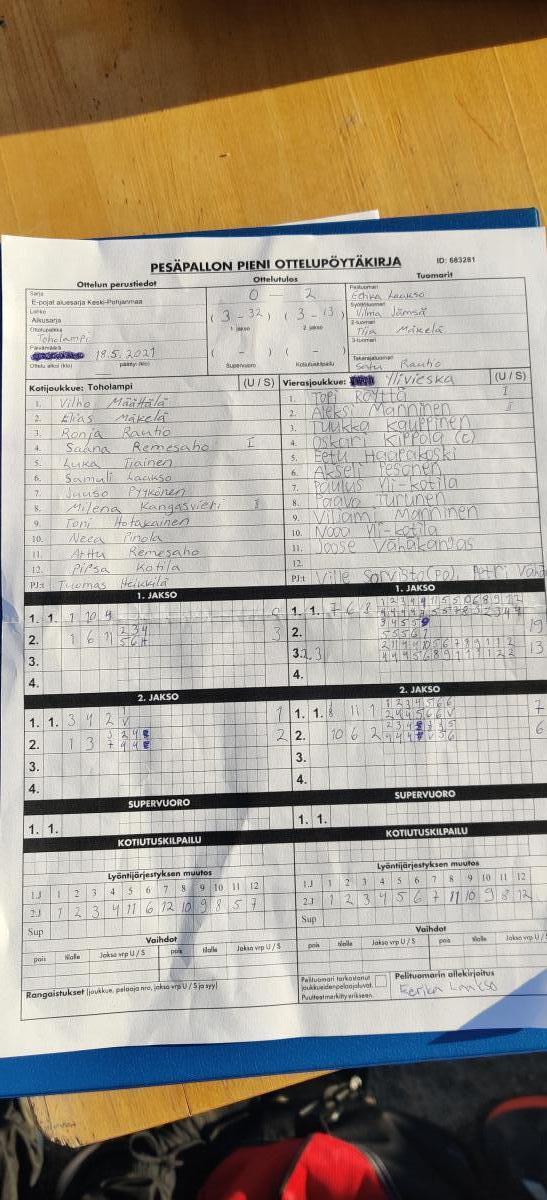 PESÄPALLON PIENI OTTELUPÖYTÄKIRJA
ID: 683281
Ottelun perustiedot
Ottelutulos
Tuomarit
Sarja
E-pojat aluesarja Keski-Pohjanmaa
Lohko
Alkusarja
Ottelupaikka
Toholampi
Päivämäärä
18.5.2021
Ottelu alkoi (klo) päättyi (klo)
0 - 2
( 3 - 32 ) ( 3 - 13 )
1 jakso 2 jakso
( - ) ( - )
Supervuoro Kotiutuskilpailu
Pelituomari
Laakso
Syöttötuomari
Vilma Jämsä
2-tuomari
Tiia Mäkelä
3-tuomari
Takarajatuomari
Rautio
Kotijoukkue: Toholampi (U / S)
1. Vilho Määttälä
2. Elias Mäkelä
3. Ronja Rautio
4. Saana Remesaho I
5. Luka Tiainen
6. Samuli Laakso
7. Juuso Pyykönen
8. Milena Kangasvieri I
9. Toni Hotakainen
10. Neea Pinola
11. Arttu Remesaho
12. Pipsa Kotila
PJ:t Tuomas Heikkilä
Vierasjoukkue: Ylivieska (U / S)
1. Topi Röyttä I
2. Aleksi Manninen II
3. Tuukka Kauppinen
4. Oskari Kippola (c)
5. Eetu Haapakoski
6. Akseli Pesonen
7. Paulus Yli-Kotila
8. Paavo Turunen
9. Viljami Manninen
10. Nooa Yli-Kotila
11. Joose Vähäkangas
12.
PJ:t Ville Sorvisto (PJ),
1. JAKSO
1. 1. 1 10 4 0
2. 1 6 11 3
3.
4.
1. JAKSO
1. 1. 7 6 8
2. 19
3. 2 3 13
4.
2. JAKSO
1. 1. 3 4 2 1
2. 1 3 7 2
3.
4.
2. JAKSO
1. 1. 8 11 1 7
2. 10 6 2 6
3.
4.
SUPERVUORO
1. 1.
SUPERVUORO
1. 1.
KOTIUTUSKILPAILU
KOTIUTUSKILPAILU
Lyöntijärjestyksen muutos
1.J 1 2 3 4 5 6 7 8 9 10 11 12
2.J 1 2 3 4 11 6 12 10 9 8 5 7
Sup
Lyöntijärjestyksen muutos
1.J 1 2 3 4 5 6 7 8 9 10 11 12
2.J 1 2 3 4 5 6 7 11 10 9 8 12
Sup
Vaihdot
pois tilalle Jakso vrp U / S pois tilalle Jakso vrp U / S
Vaihdot
pois tilalle Jakso vrp U / S pois tilalle Jakso vrp U / S
Rangaistukset (joukkue, pelaaja nro, jakso vrp U / S ja syy)
Pelituomari tarkastanut
joukkueiden pelaajaluvat.
Puutteet merkitty erikseen.
Pelituomarin allekirjoitus
Eerika Laakso